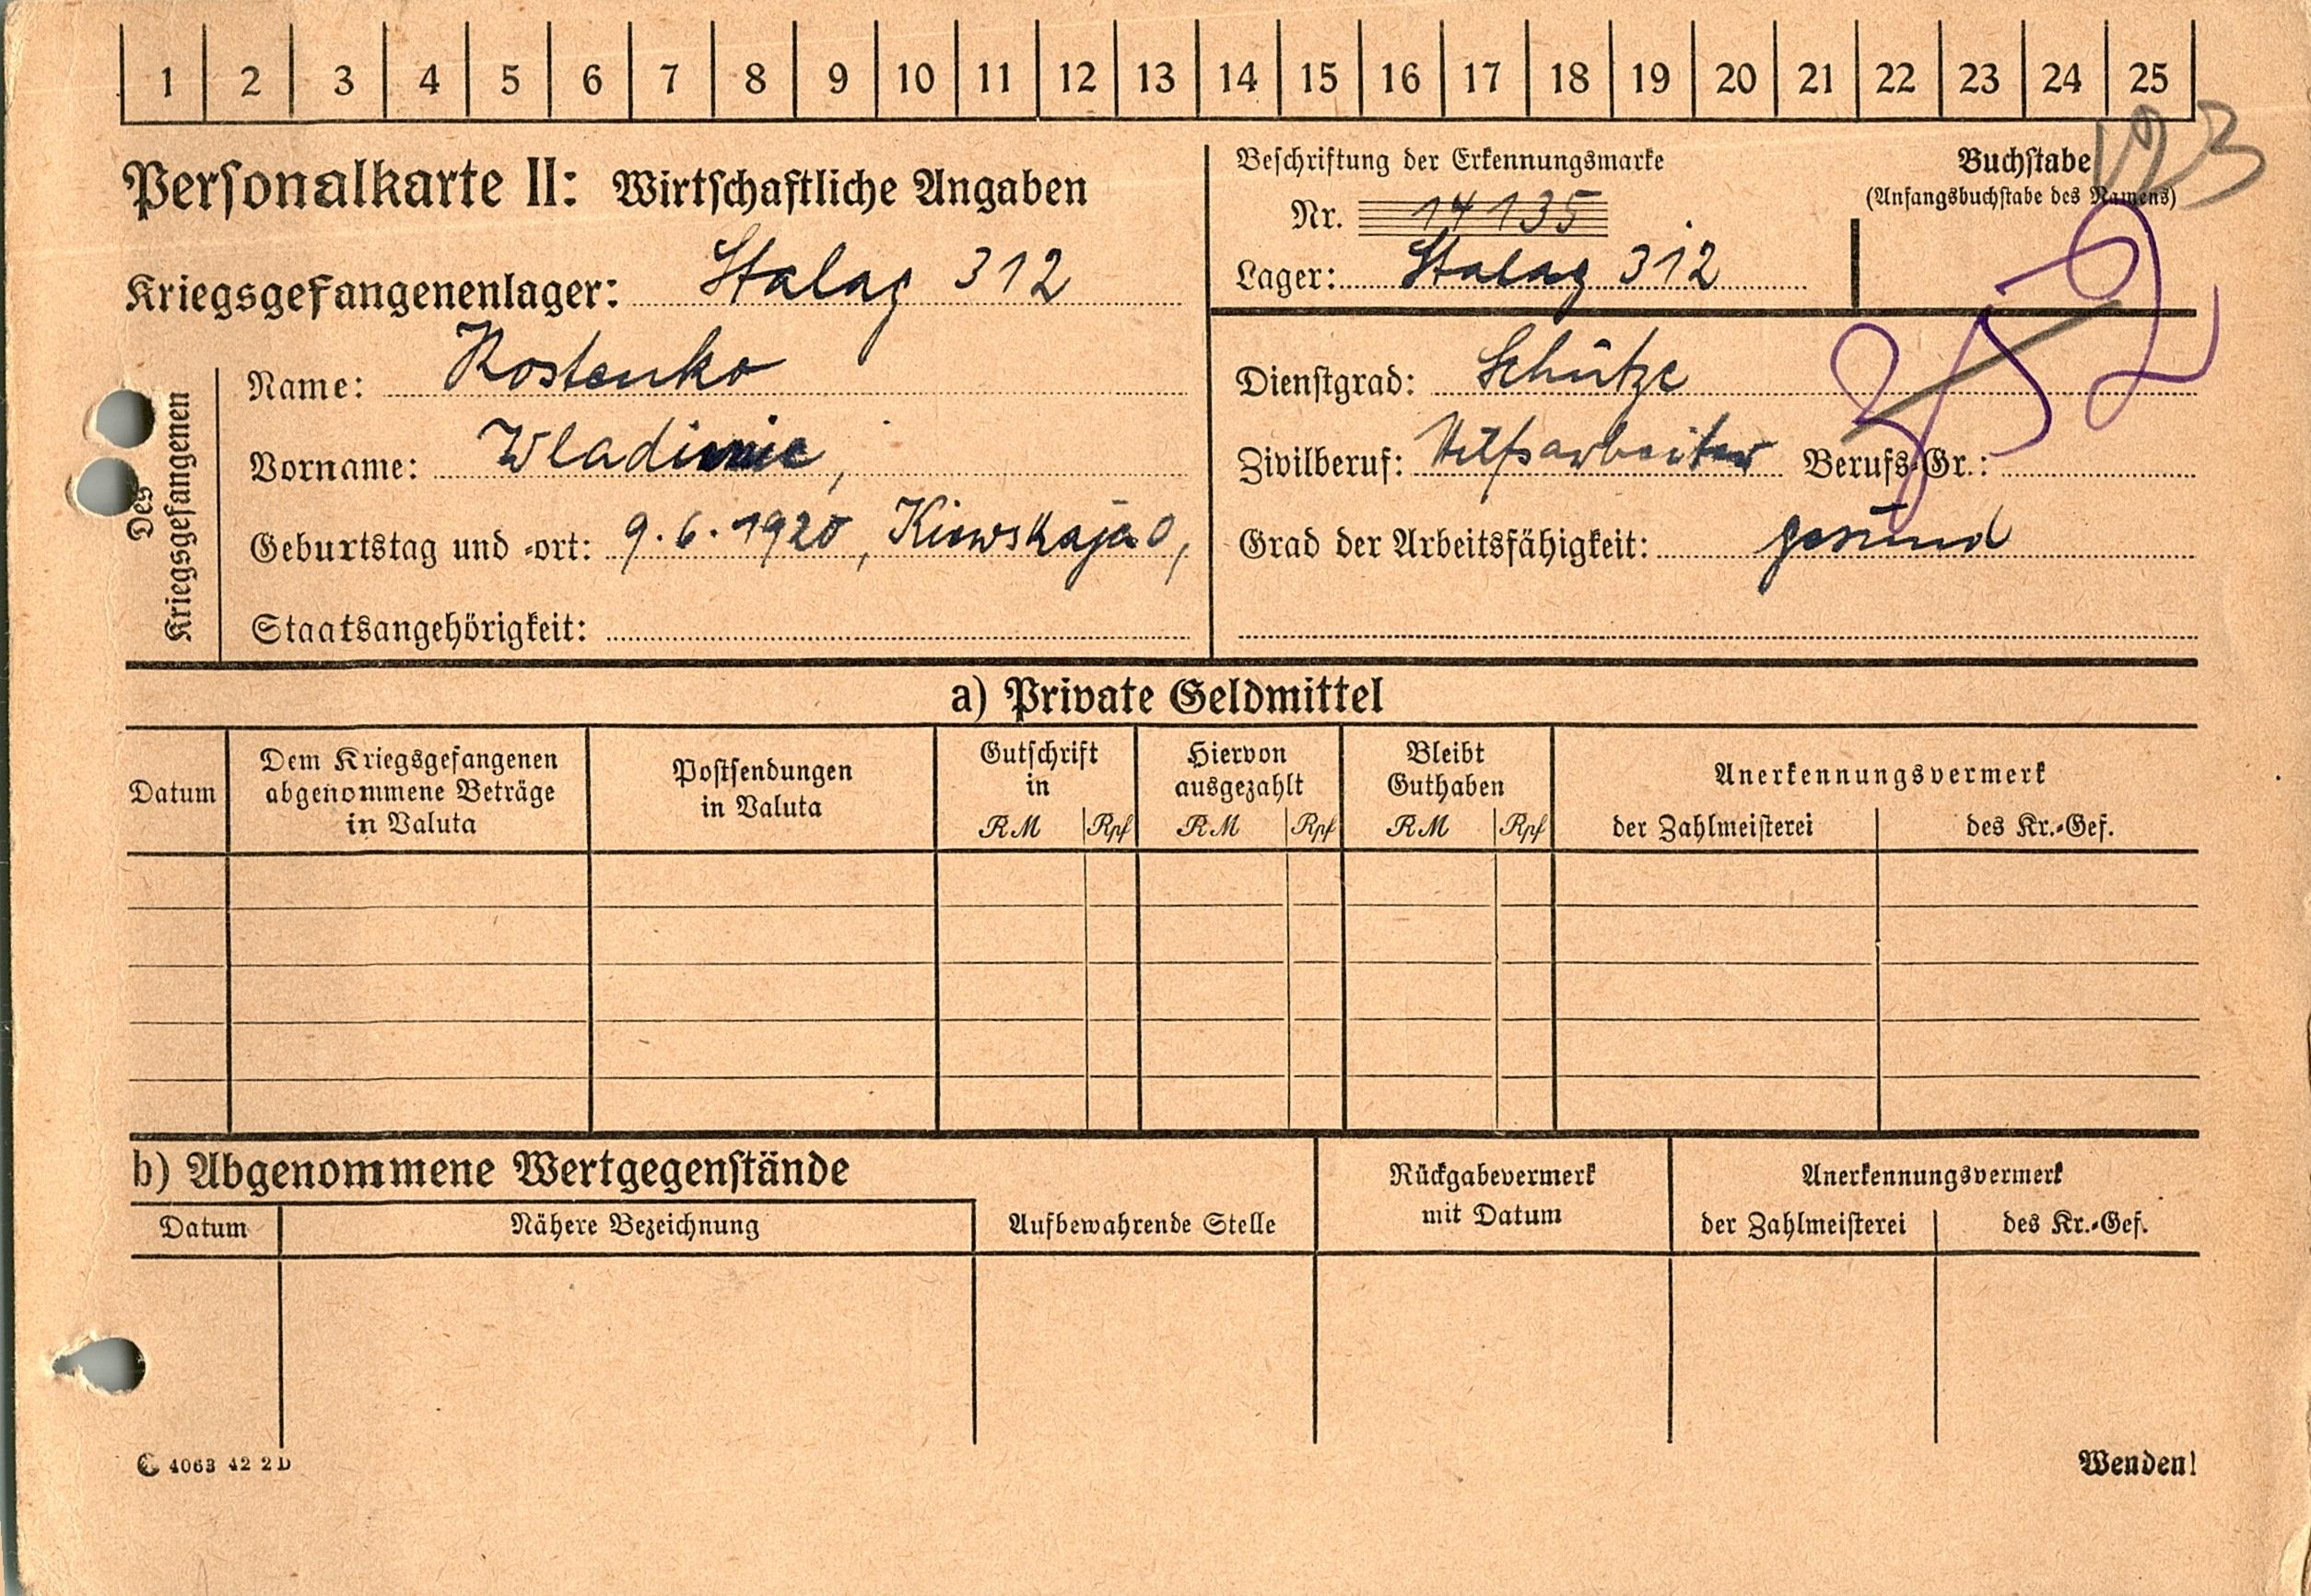 1 2 3 4 5 6 7 8 9 10 11 12 13 14 15 16 17 18 19 20 21 22 23 24 25
193
Personalkarte II: Wirtschaftliche Angaben
Kriegsgefangenenlager: Stalag 312
Des Kriegsgefangenen
Name: Kostenko
Vorname: Wladimir,
Geburtstag und -ort: 9.6.1920, Kiewskaja O,
Staatsangehörigkeit:
Beschriftung der Erkennungsmarke
Nr. 14135
Lager: Stalag 312
Buchstabe
(Anfangsbuchstabe des Namens)
Dienstgrad: Schütze
Zivilberuf: Hilfsarbeiter Berufs-Gr.:
Grad der Arbeitsfähigkeit: gesund
a) Private Geldmittel
Datum
Dem Kriegsgefangenen
abgenommene Beträge
in Valuta
Postsendungen
in Valuta
Gutschrift
in
RM Rpf
Hiervon
ausgezahlt
RM Rpf
Bleibt
Guthaben
RM Rpf
Anerkennungsvermerk
der Zahlmeisterei des Kr.-Gef.
b) Abgenommene Wertgegenstände
Datum Nähere Bezeichnung Aufbewahrende Stelle
Rückgabevermerk
mit Datum
Anerkennungsvermerk
der Zahlmeisterei des Kr.-Gef.
C 4063 42 2 D
Wenden!